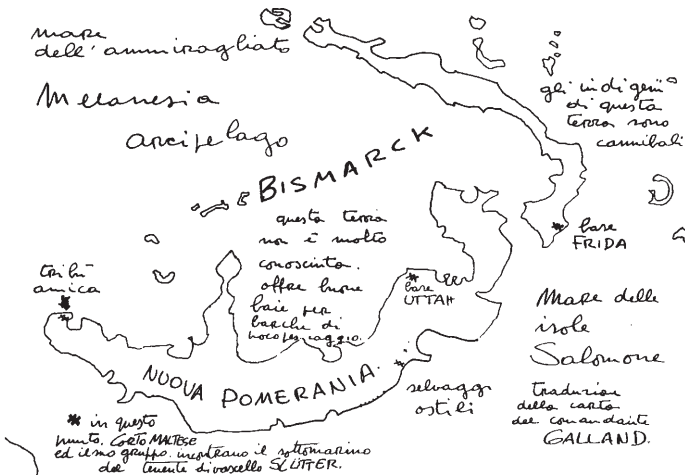 mare
dell'ammiragliato
Melanesia
arcipelago
BISMARCK
gli indigeni
di questa
terra sono
cannibali
questa terra
non è molto
conosciuta.
offre buone
baie per
barche di
poco pescaggio.
base
FRIDA
tribù
amica
base
UTTAH
Mare delle
isole
Salomone
NUOVA POMERANIA.
selvaggi
ostili
traduzione
della carta
del comandante
GALLAND.
* in questo
punto. CORTO MALTESE
ed il suo gruppo. incontrano il sottomarino
del tenente di vascello SLÜTTER.